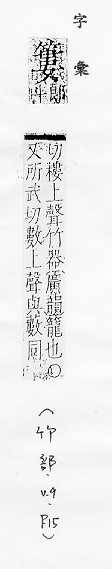 字彙
簍 郎
切樓上聲竹器廣韻籠也○
又所武切數上聲與數同
(竹部.v.9.P15)